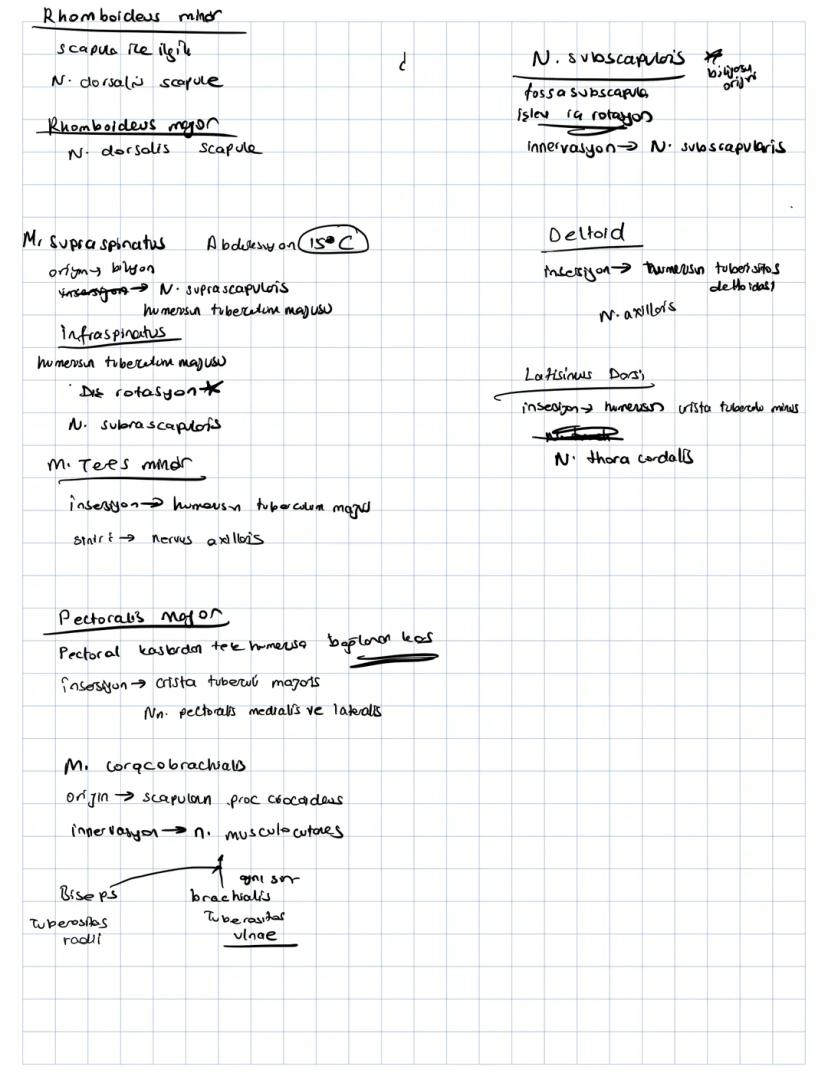 Rhomboideus minor
scapula ile ilgili
N. dorsalis scapule
Rhomboideus major
N. dorsalis scapule
M. Supraspinatus Abduksiyon 15° C
origin → biliyon
N. suprascapularis
humerusun tuberculum majusu
İnfraspinatus
humerusun tuberculum majusu
Dış rotasyon
N. subrascapularis
M. Teres minor
insersiyon → humerusun tuberculum majus
sinir → nervus axillaris
Pectoralis Major
Pectoral kaslardan tek humerusa bağlanan kas
insersiyon → crista tuberculi majoris
Nn. pectoralis medialis ve lateralis
M. coracobrachialis
origin → scapulanın proc
innervasyon → n. musculocutaneus
aynı sinir
Biseps brachialis
Tuberositas radii
Tuberositas ulnae
N. subscapularis
biliyosun origini
fossa subscapula
işlev iç rotasyon
innervasyon → N. subscapularis
Deltoid
insersiyon → humerusun tuberositas
deltoidasi
N. axillaris
Latisimus Dorsi
insersiyon → humerusun crista tuberculo minus
N. thoracordalis